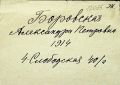 Боровская
Александра Петровна
1914
4 Слободская 40/